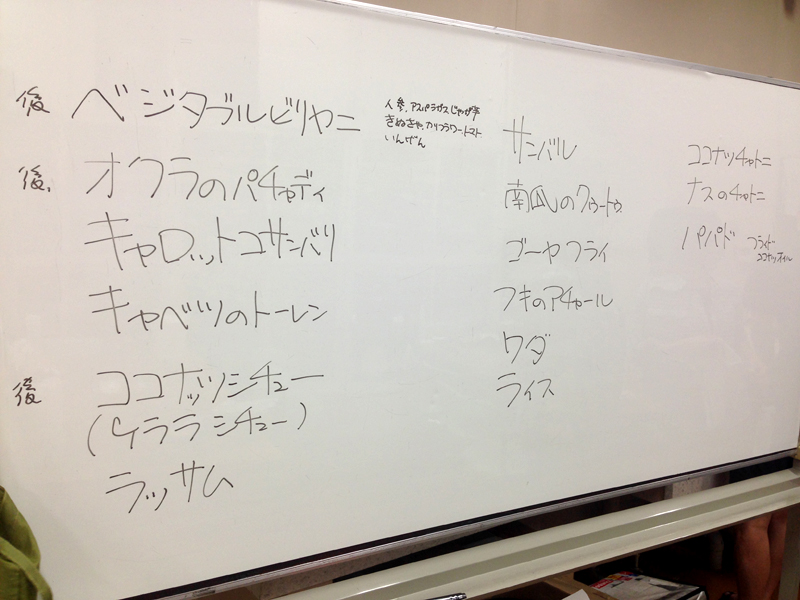 後 ベジタブルビリヤニ
人参、アスパラガス じゃが芋
きぬさや、カリフラワー トマト
いんげん
後、オクラのパチャディ
キャロットコサンバリ
キャベツのトーレン
後 ココナッツシチュー
(ケララシチュー)
ラッサム
サンバル
南瓜のクゥートゥ
ゴーヤフライ
フキのアチャール
ワダ
ライス
ココナッツチャトニ
ナスのチャトニ
パパド フライド
ココナッツオイル